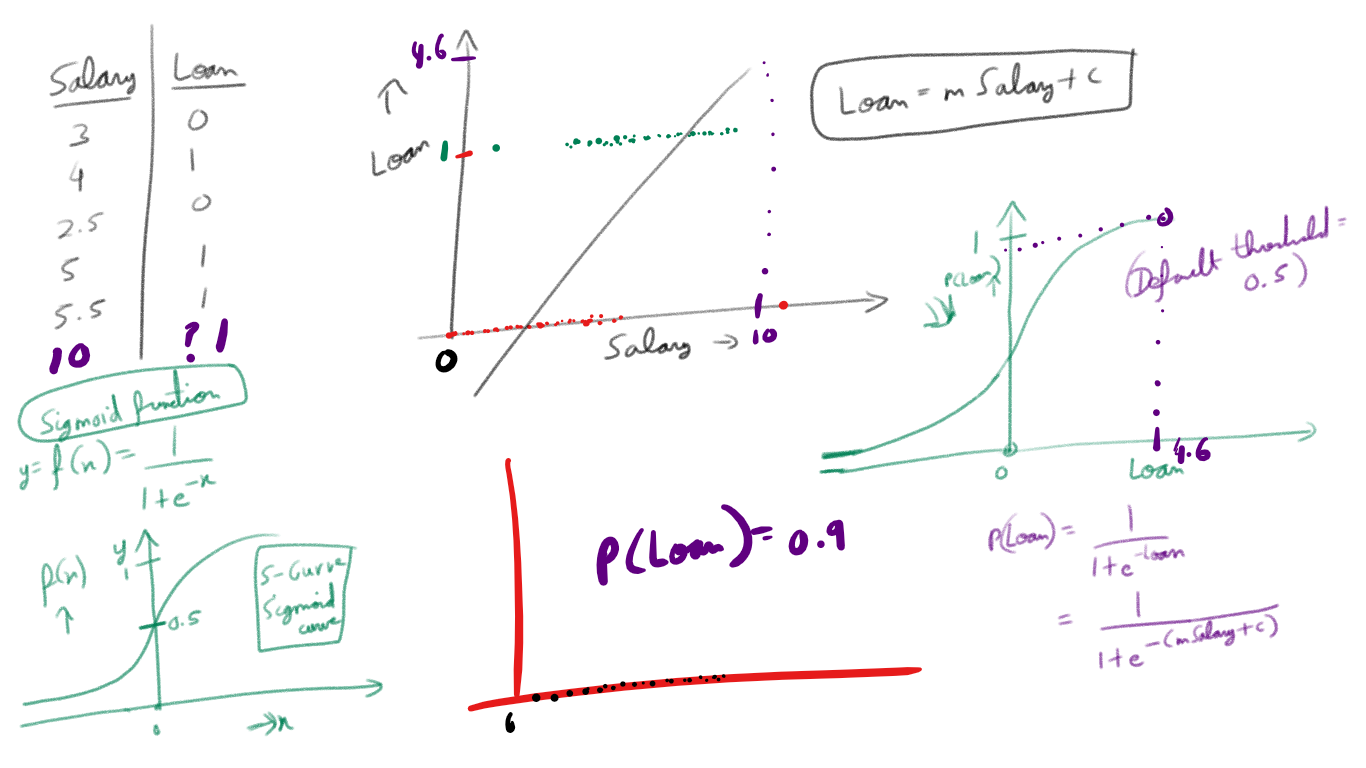 Salary Loan
3 0
4 1
2.5 0
5 1
5.5 1
10 ? 1
Sigmoid function
y = f(x) = 1 / 1+e^-x
P(x)
↑
y
1
0.5
S-Curve
Sigmoid
curve
0
→x
4.6
↑
Loan 1
0
Salary →
10
Loan = m Salary + c
P(Loan) = 0.9
6
1
P(Loan)
↑
(Default threshold =
0.5)
0
Loan
4.6
P(Loan) = 1 / 1+e^-loan
= 1 / 1+e^-(mSalary+c)